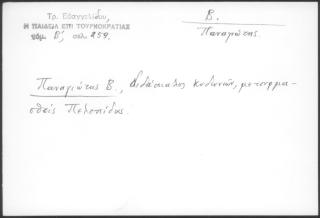 Τρ. Εὐαγγελίδου,
Η ΠΑΙΔΕΙΑ ΕΠΙ ΤΟΥΡΚΟΚΡΑΤΙΑΣ
τόμ. Β', σελ. 259.
Β.
Παναγιώτης.
Παναγιώτης Β., διδάσκαλος Κυδωνιῶν, μετονομα-
σθεὶς Πελοπίδης.